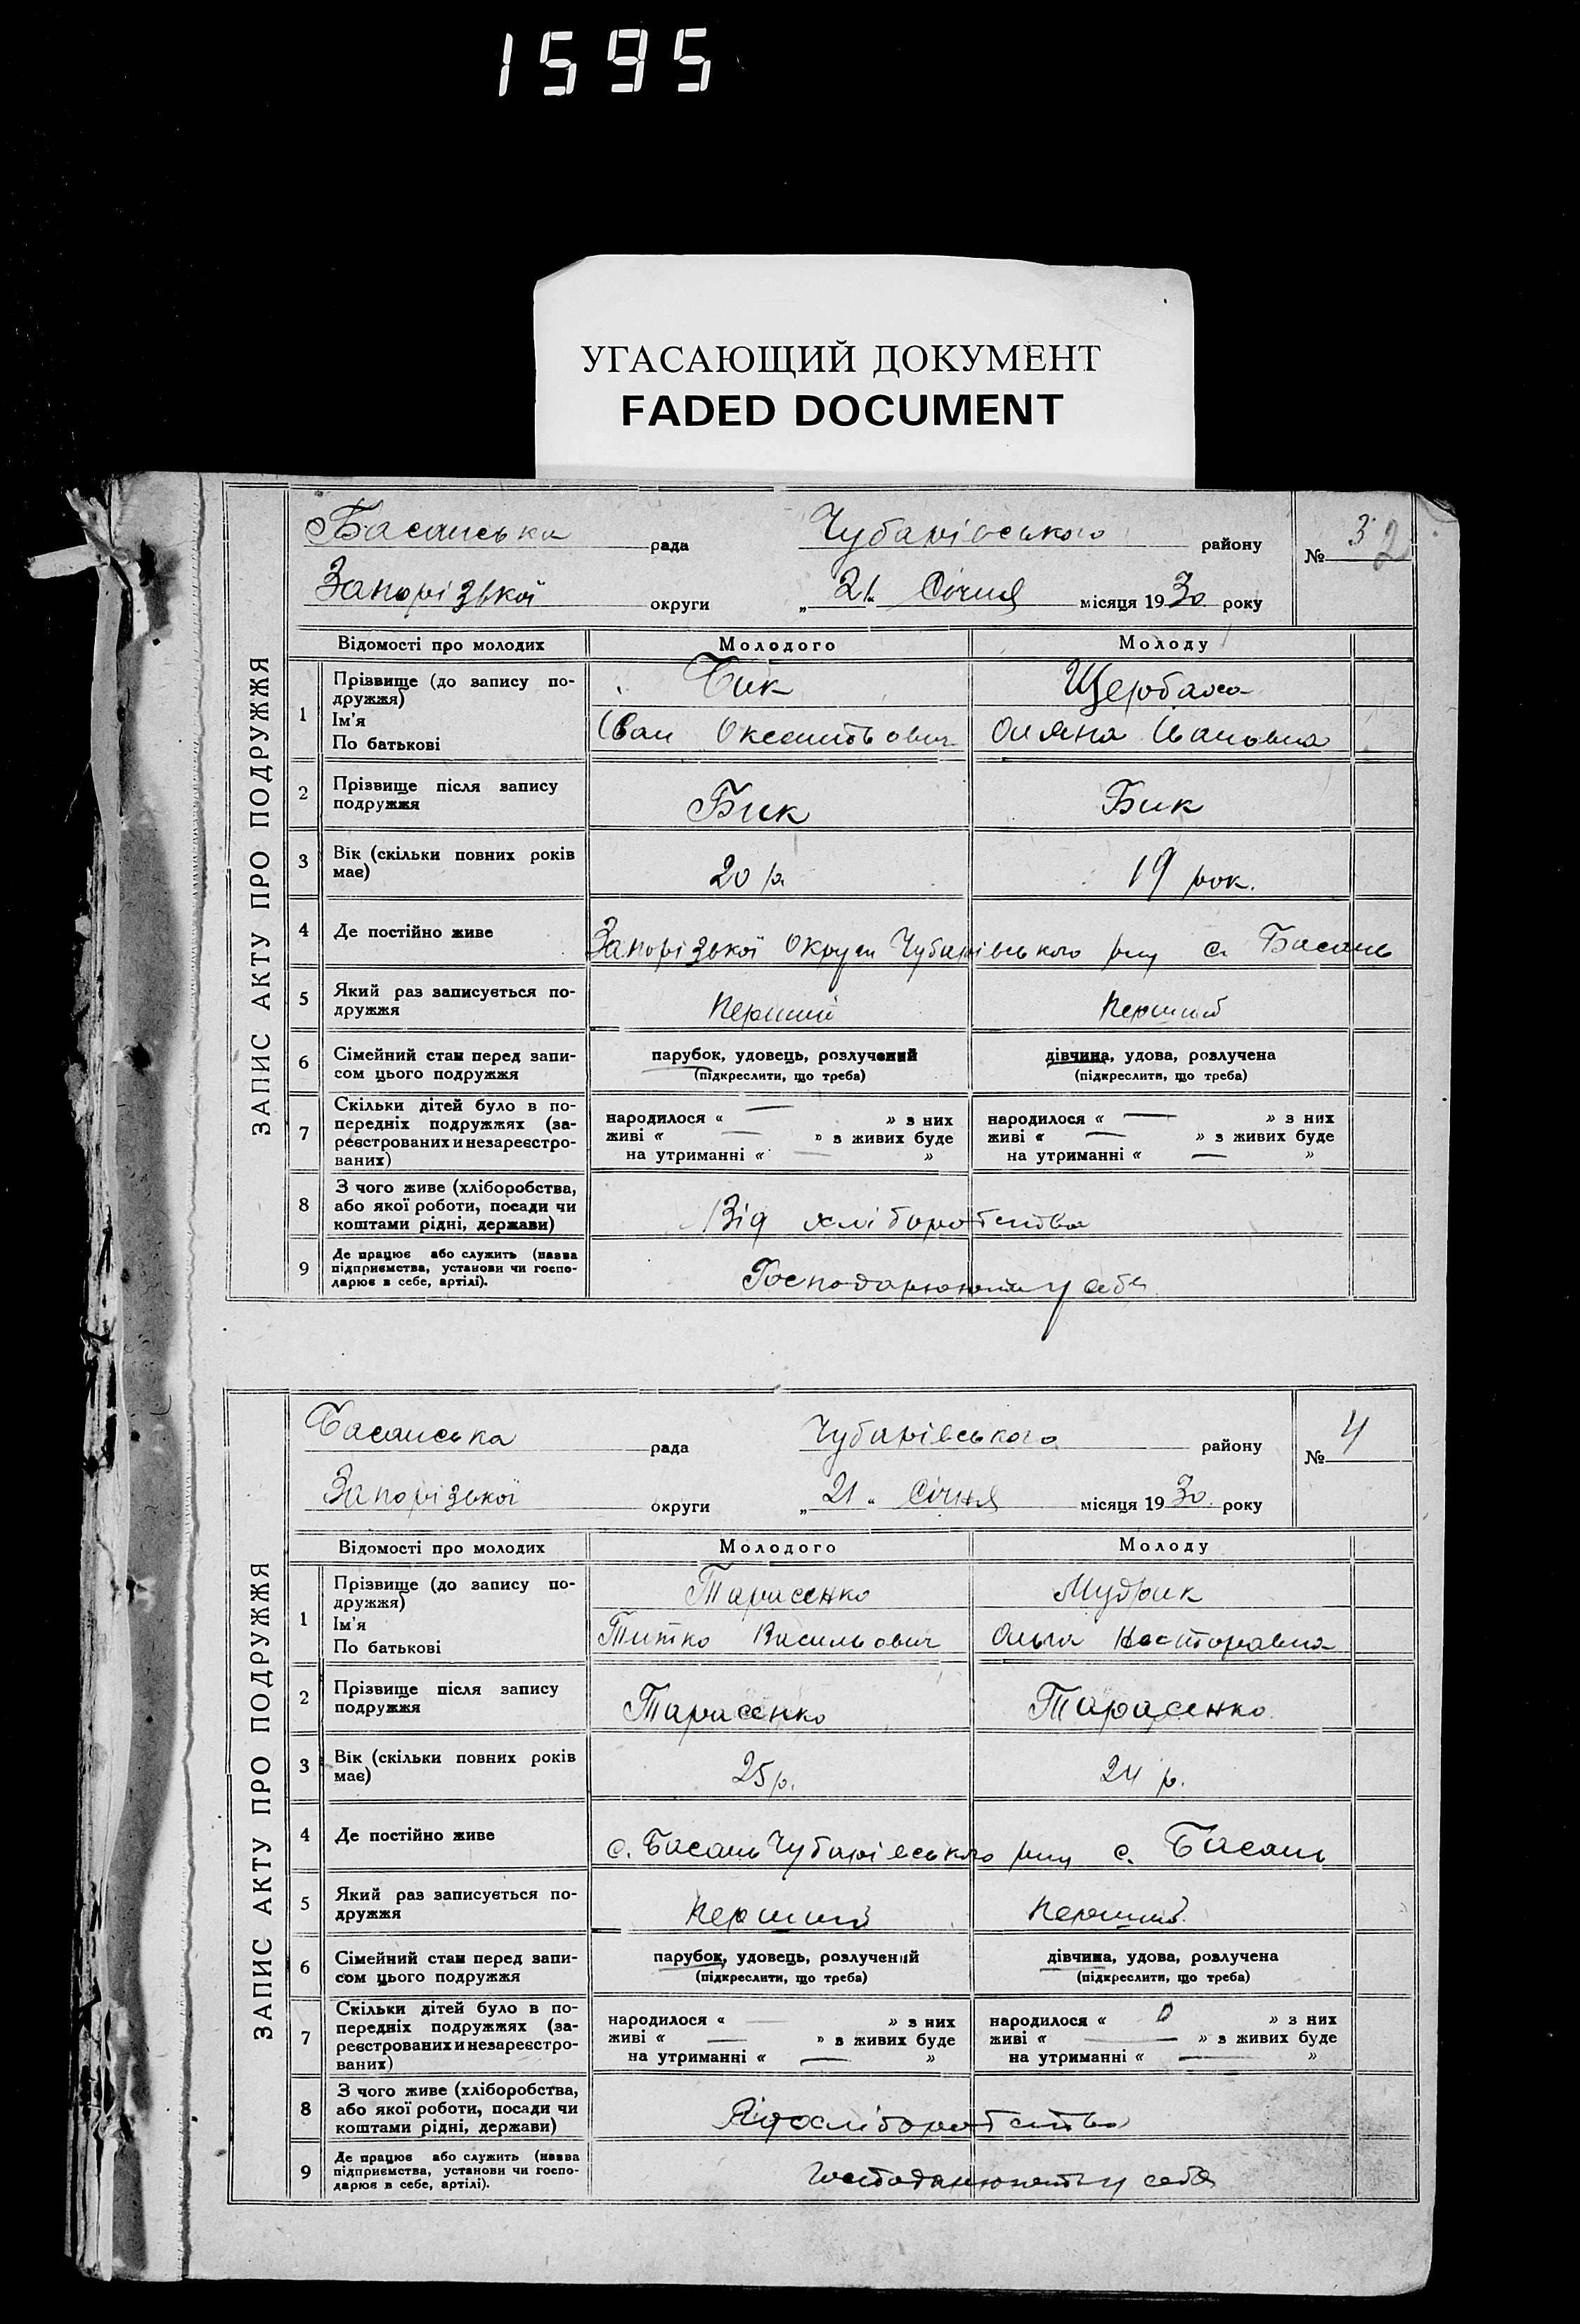 1595
УГАСАЮЩИЙ ДОКУМЕНТ
FADED DOCUMENT
ЗАПИС АКТУ ПРО ПОДРУЖЖЯ
Басанська рада Чубарівського району № 3 2
Запорізької округи „21“ Січня місяця 1930 року
Відомості про молодих Молодого Молоду
1 Прізвище (до запису подружжя) Бик Щербака
Ім'я
По батькові Іван Оксентьович Оляна Івановна
2 Прізвище після запису подружжя Бик Бик
3 Вік (скільки повних років має) 20 р. 19 рок.
4 Де постійно живе Запорізької Округи Чубарівського р-ну с. Басань
5 Який раз записується подружжя Перший Перший
6 Сімейний стан перед записом цього подружжя парубок, удовець, розлучений дівчина, удова, розлучена
(підкреслити, що треба) (підкреслити, що треба)
7 Скільки дітей було в попередніх подружжях (зареєстрованих и незареєстрованих) народилося « — » з них народилося « — » з них
живі « — » з живих буде живі « — » з живих буде
на утриманні « — » на утриманні « — »
8 З чого живе (хліборобства, або якої роботи, посади чи коштами рідні, держави) Від хліборобства
9 Де працює або служить (назва підприємства, установи чи господарює в себе, артілі). Господарюють у себе
ЗАПИС АКТУ ПРО ПОДРУЖЖЯ
Басанська рада Чубарівського району № 4
Запорізької округи „21“ Січня місяця 1930 року
Відомості про молодих Молодого Молоду
1 Прізвище (до запису подружжя) Тарасенко Мудрик
Ім'я
По батькові Титко Васильович Ольга Несторовна
2 Прізвище після запису подружжя Тарасенко Тарасенко
3 Вік (скільки повних років має) 25 р. 24 р.
4 Де постійно живе с. Басань Чубарівського р-ну с. Басань
5 Який раз записується подружжя Перший Перший
6 Сімейний стан перед записом цього подружжя парубок, удовець, розлучений дівчина, удова, розлучена
(підкреслити, що треба) (підкреслити, що треба)
7 Скільки дітей було в попередніх подружжях (зареєстрованих и незареєстрованих) народилося « — » з них народилося « 0 » з них
живі « — » з живих буде живі « — » з живих буде
на утриманні « — » на утриманні « — »
8 З чого живе (хліборобства, або якої роботи, посади чи коштами рідні, держави) Від хліборобства
9 Де працює або служить (назва підприємства, установи чи господарює в себе, артілі). Господарюють у себе